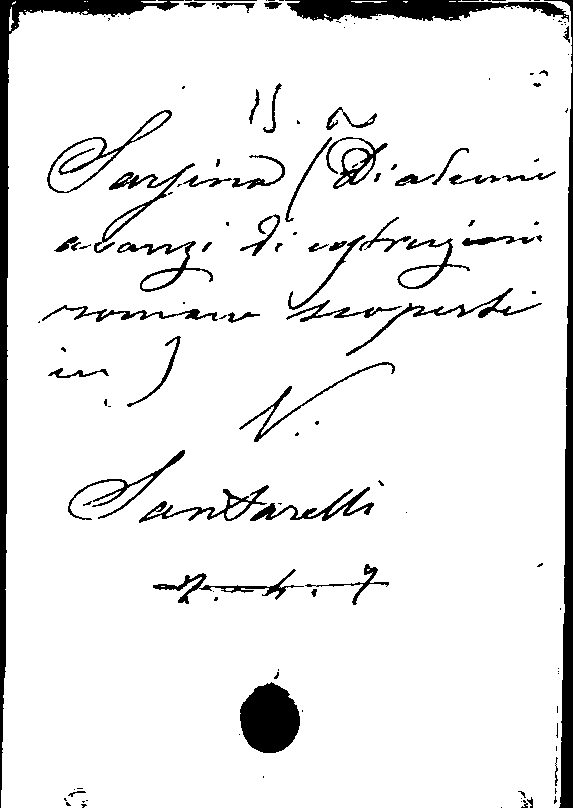 15. a
Sarsina (Di alcuni
avanzi di costruzioni
romane scoperti
in)
V.
Santarelli